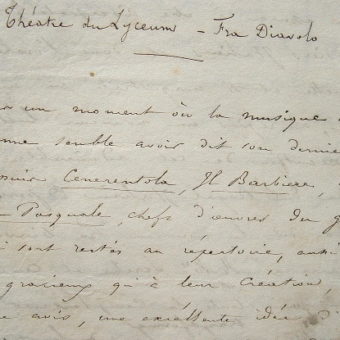 Théâtre du Lyceum - Fra Diavolo
un moment où la musique
semble avoir dit son dernier
puis Cenerentola, Il Barbiere,
Pasquale, chefs d'œuvres du g
sont restés au répertoire, aussi
gracieux qu'à leur création,
avis, une excellente idée